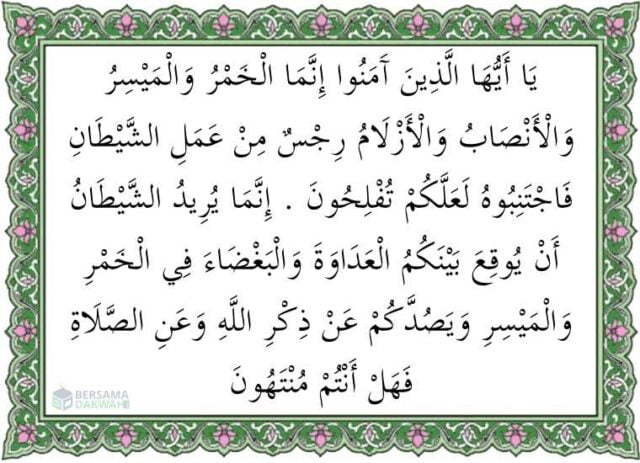 يَا أَيُّهَا الَّذِينَ آَمَنُوا إِنَّمَا الْخَمْرُ وَالْمَيْسِرُ
وَالْأَنْصَابُ وَالْأَزْلَامُ رِجْسٌ مِنْ عَمَلِ الشَّيْطَانِ
فَاجْتَنِبُوهُ لَعَلَّكُمْ تُفْلِحُونَ . إِنَّمَا يُرِيدُ الشَّيْطَانُ
أَنْ يُوقِعَ بَيْنَكُمُ الْعَدَاوَةَ وَالْبَغْضَاءَ فِي الْخَمْرِ
وَالْمَيْسِرِ وَيَصُدَّكُمْ عَنْ ذِكْرِ اللَّهِ وَعَنِ الصَّلَاةِ
فَهَلْ أَنْتُمْ مُنْتَهُونَ
BERSAMA
DAKWAH